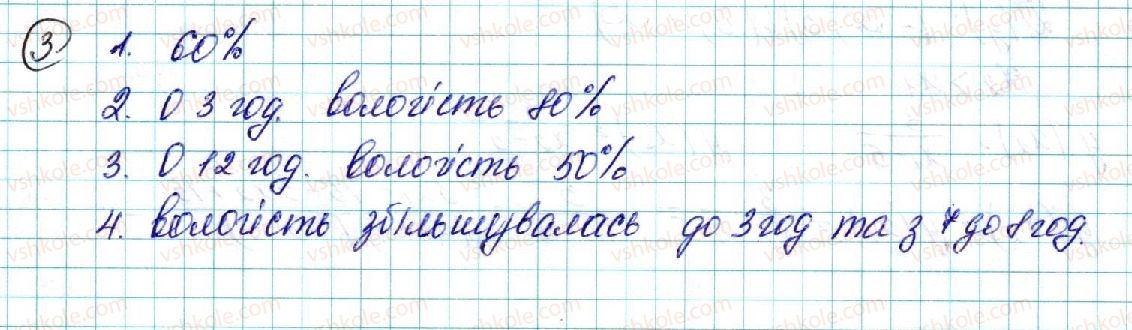 3 1. 60%
2. О 3 год. вологість 80%
3. О 12 год. вологість 50%
4. вологість збільшувалась до 3 год та з 7 до 8 год.